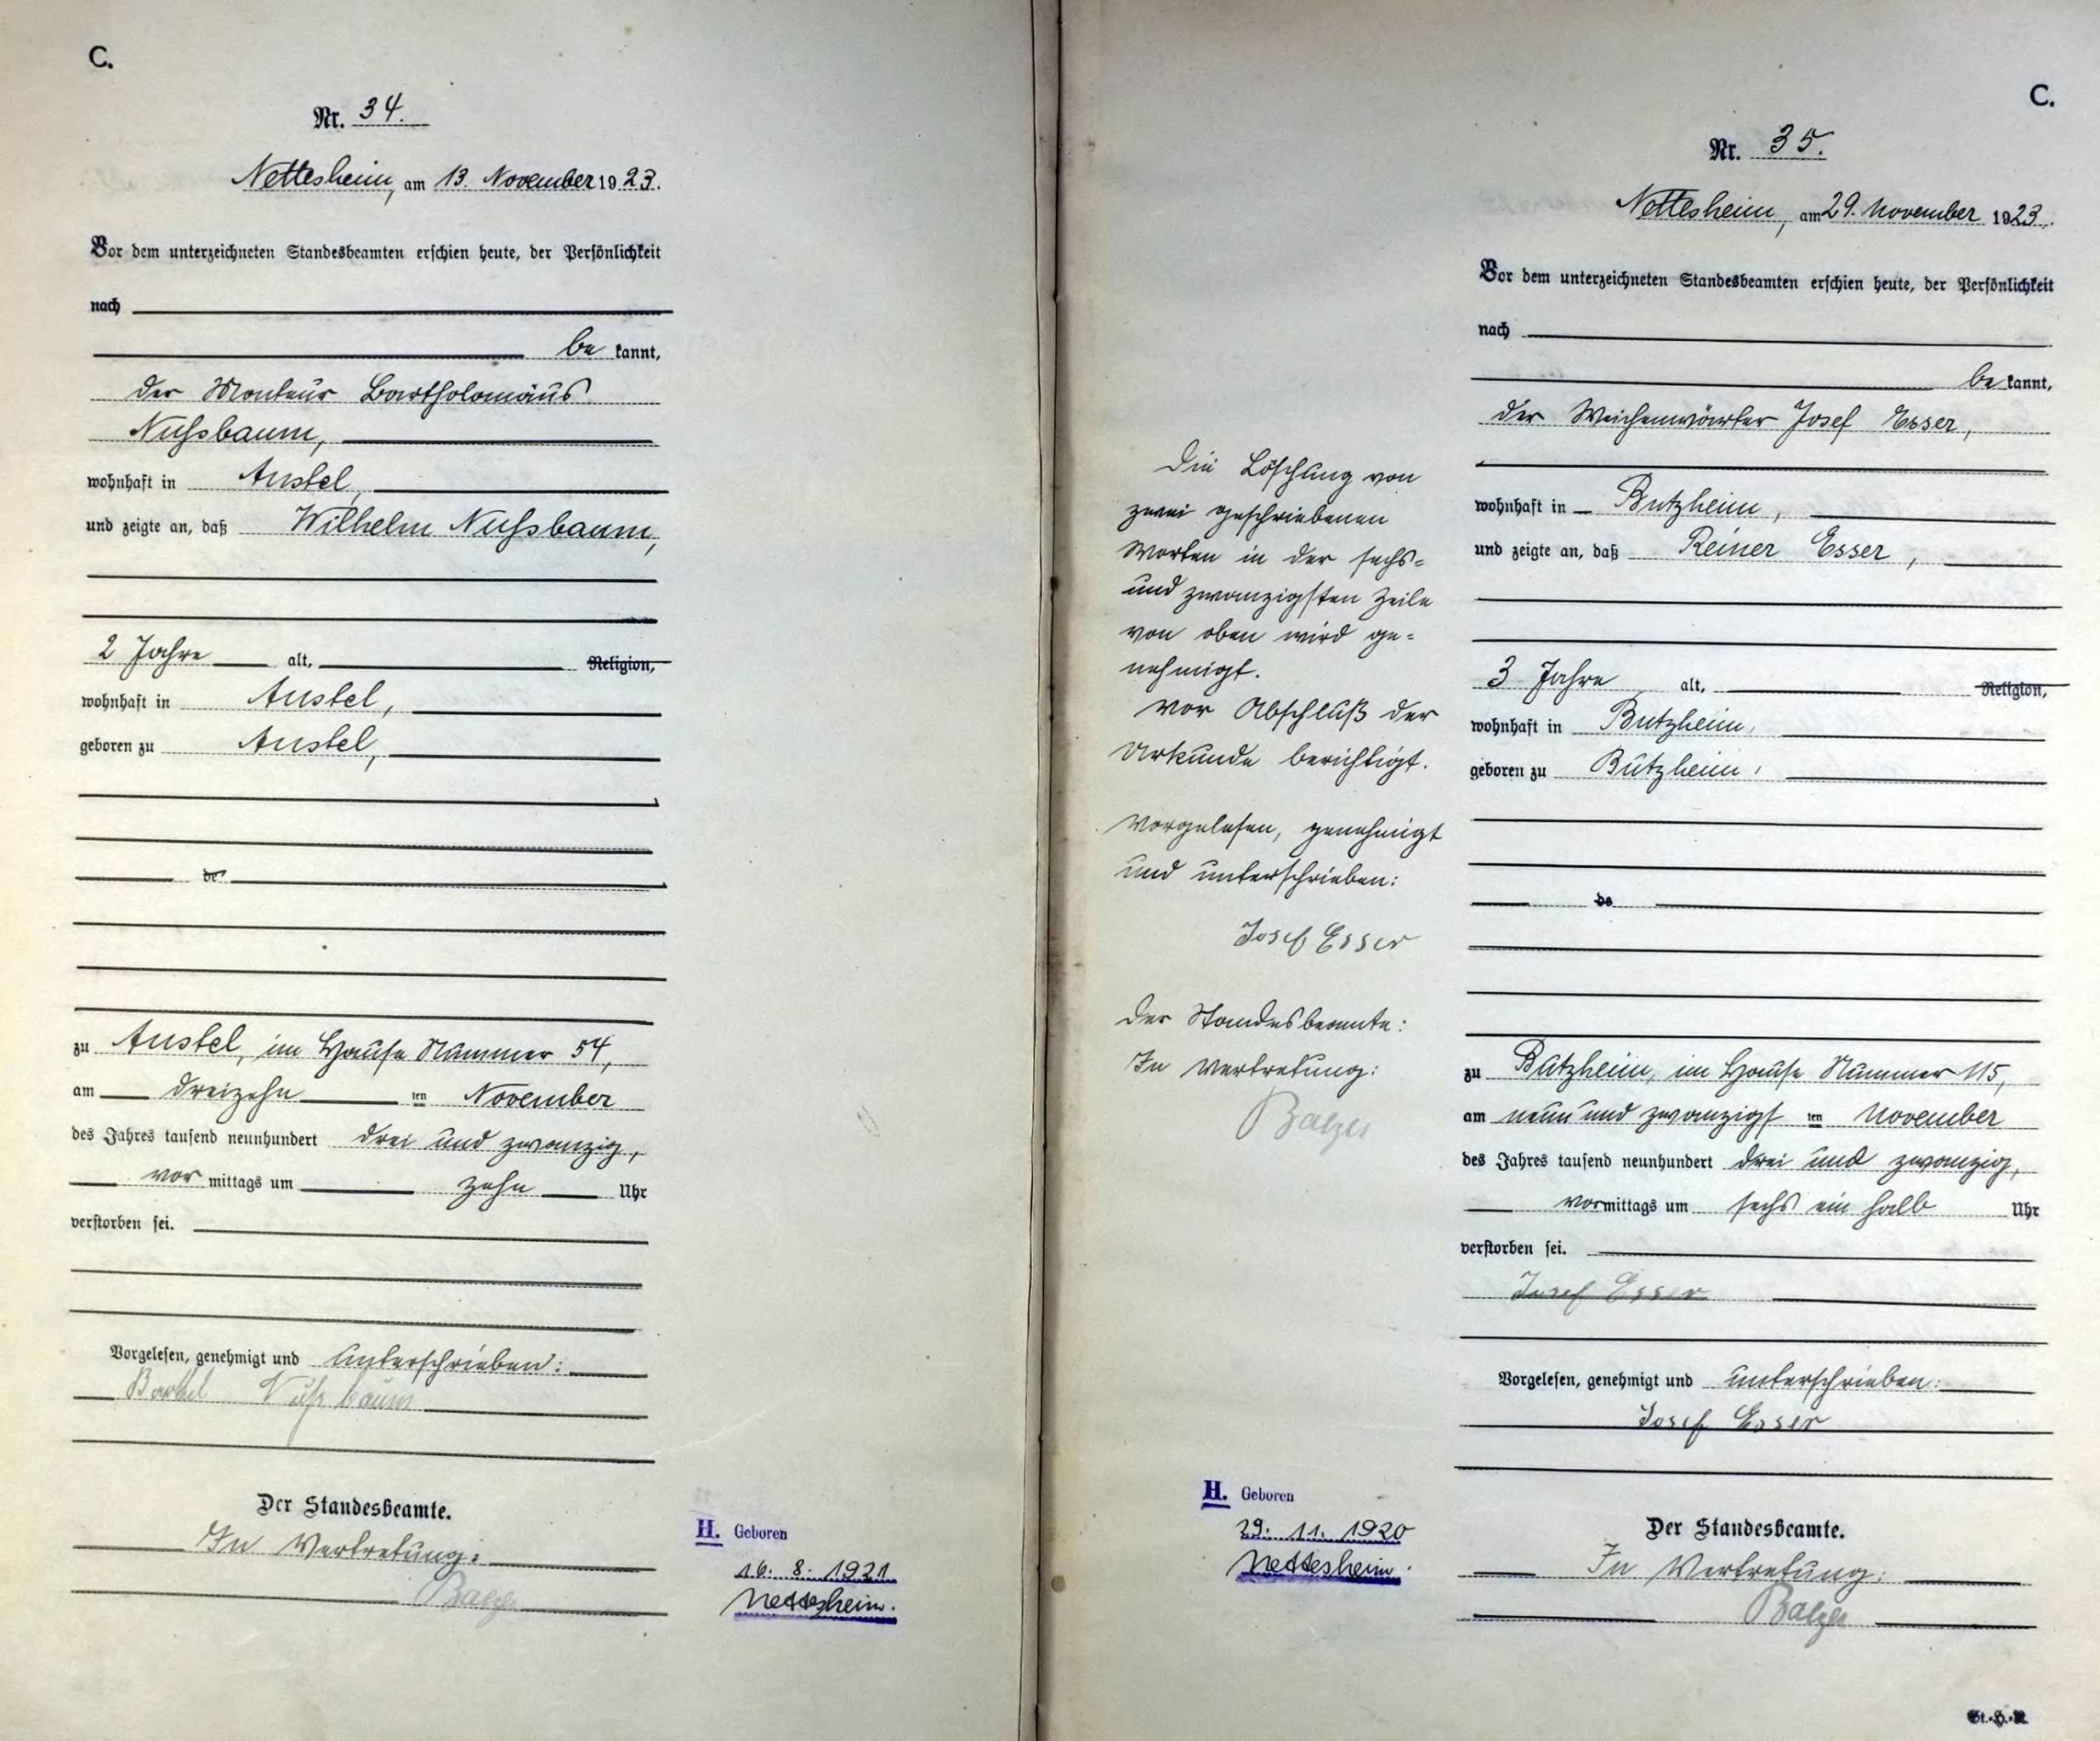 C.
Nr. 34.
Nettesheim, am 13. November 1923.
Vor dem unterzeichneten Standesbeamten erschien heute, der Persönlichkeit
nach
be kannt,
der Monteur Bartholomäus
Nußbaum,
wohnhaft in Anstel,
und zeigte an, daß Wilhelm Nußbaum,
2 Jahre alt, Religion,
wohnhaft in Anstel,
geboren zu Anstel,
de
zu Anstel, im Hause Nummer 54,
am dreizehn ten November
des Jahres tausend neunhundert drei und zwanzig,
vor mittags um zehn Uhr
verstorben sei.
Vorgelesen, genehmigt und unterschrieben:
Barthel Nußbaum
Der Standesbeamte.
In Vertretung:
H. Geboren
16. 8. 1921
Nettesheim.
C.
Nr. 35.
Nettesheim, am 29. November 1923.
Vor dem unterzeichneten Standesbeamten erschien heute, der Persönlichkeit
nach
be kannt,
der Weichenwärter Josef Esser,
wohnhaft in Butzheim,
und zeigte an, daß Reiner Esser,
3 Jahre alt, Religion,
wohnhaft in Butzheim,
geboren zu Butzheim,
de
zu Butzheim, im Hause Nummer 115,
am neun und zwanzigst ten November
des Jahres tausend neunhundert drei und zwanzig,
vormittags um sechs ein halb Uhr
verstorben sei.
Josef Esser
Vorgelesen, genehmigt und unterschrieben:
Josef Esser
Der Standesbeamte.
In Vertretung:
Die Löschung von
zwei geschriebenen
Worten in der sechs-
und zwanzigsten Zeile
von oben wird ge-
nehmigt.
Vor Abschluß der
Urkunde berichtigt.
Vorgelesen, genehmigt
und unterschrieben:
Josef Esser
Der Standesbeamte:
In Vertretung:
H. Geboren
29. 11. 1920
Nettesheim.